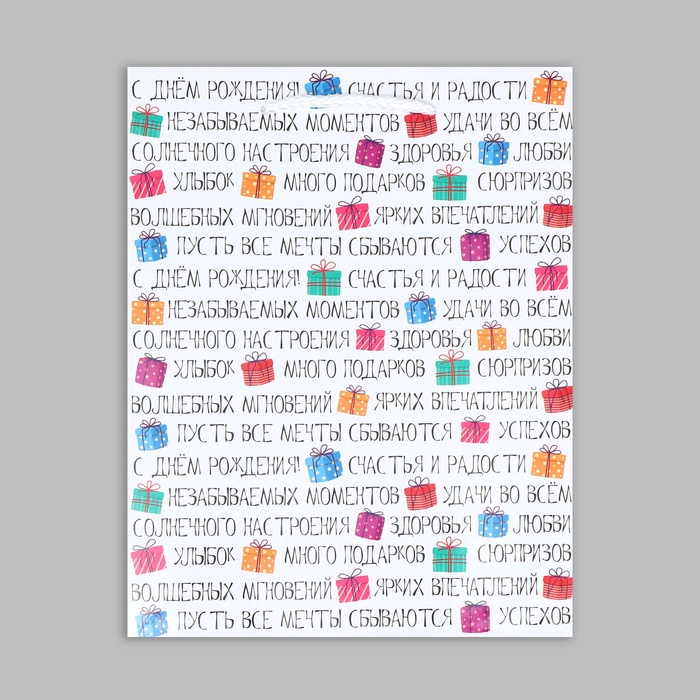 С ДНЁМ РОЖДЕНИЯ! СЧАСТЬЯ И РАДОСТИ
НЕЗАБЫВАЕМЫХ МОМЕНТОВ УДАЧИ ВО ВСЁМ
СОЛНЕЧНОГО НАСТРОЕНИЯ ЗДОРОВЬЯ ЛЮБВИ
УЛЫБОК МНОГО ПОДАРКОВ СЮРПРИЗОВ
ВОЛШЕБНЫХ МГНОВЕНИЙ ЯРКИХ ВПЕЧАТЛЕНИЙ
ПУСТЬ ВСЕ МЕЧТЫ СБЫВАЮТСЯ УСПЕХОВ
С ДНЁМ РОЖДЕНИЯ! СЧАСТЬЯ И РАДОСТИ
НЕЗАБЫВАЕМЫХ МОМЕНТОВ УДАЧИ ВО ВСЁМ
СОЛНЕЧНОГО НАСТРОЕНИЯ ЗДОРОВЬЯ ЛЮБВИ
УЛЫБОК МНОГО ПОДАРКОВ СЮРПРИЗОВ
ВОЛШЕБНЫХ МГНОВЕНИЙ ЯРКИХ ВПЕЧАТЛЕНИЙ
ПУСТЬ ВСЕ МЕЧТЫ СБЫВАЮТСЯ УСПЕХОВ
С ДНЁМ РОЖДЕНИЯ! СЧАСТЬЯ И РАДОСТИ
НЕЗАБЫВАЕМЫХ МОМЕНТОВ УДАЧИ ВО ВСЁМ
СОЛНЕЧНОГО НАСТРОЕНИЯ ЗДОРОВЬЯ ЛЮБВИ
УЛЫБОК МНОГО ПОДАРКОВ СЮРПРИЗОВ
ВОЛШЕБНЫХ МГНОВЕНИЙ ЯРКИХ ВПЕЧАТЛЕНИЙ
ПУСТЬ ВСЕ МЕЧТЫ СБЫВАЮТСЯ УСПЕХОВ